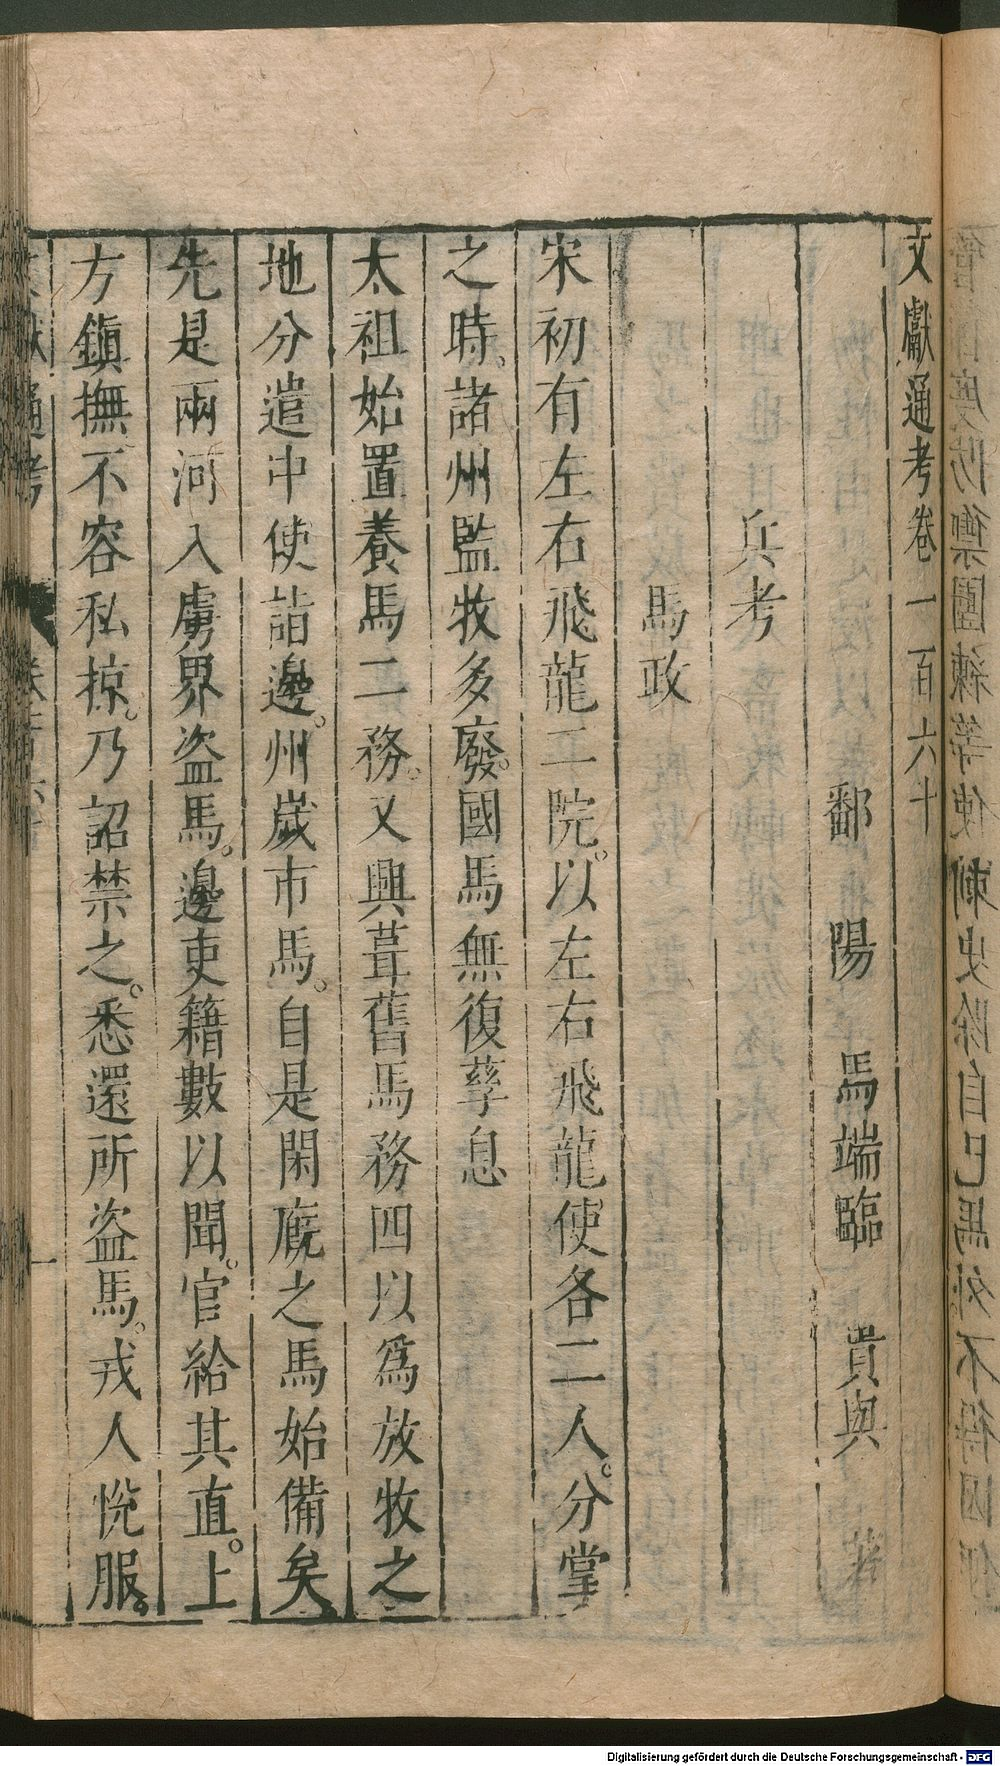 文獻通考卷一百六十
鄱陽馬端臨貴與著
兵考
馬政
宋初有左右飛龍二院。以左右飛龍使各二人。分掌
之時。諸州監牧多廢。國馬無復孳息
太祖始置養馬二務。又興葺舊馬務四以爲放牧之
地分遣中使詣邊。州歲市馬。自是閑廐之馬始備矣
先是兩河入虜界盜馬。邊吏籍數以聞。官給其直。上
方鎮撫不容私掠。乃詔禁之。悉還所盜馬。戎人悅服。
一
Digitalisierung gefördert durch die Deutsche Forschungsgemeinschaft - DFG